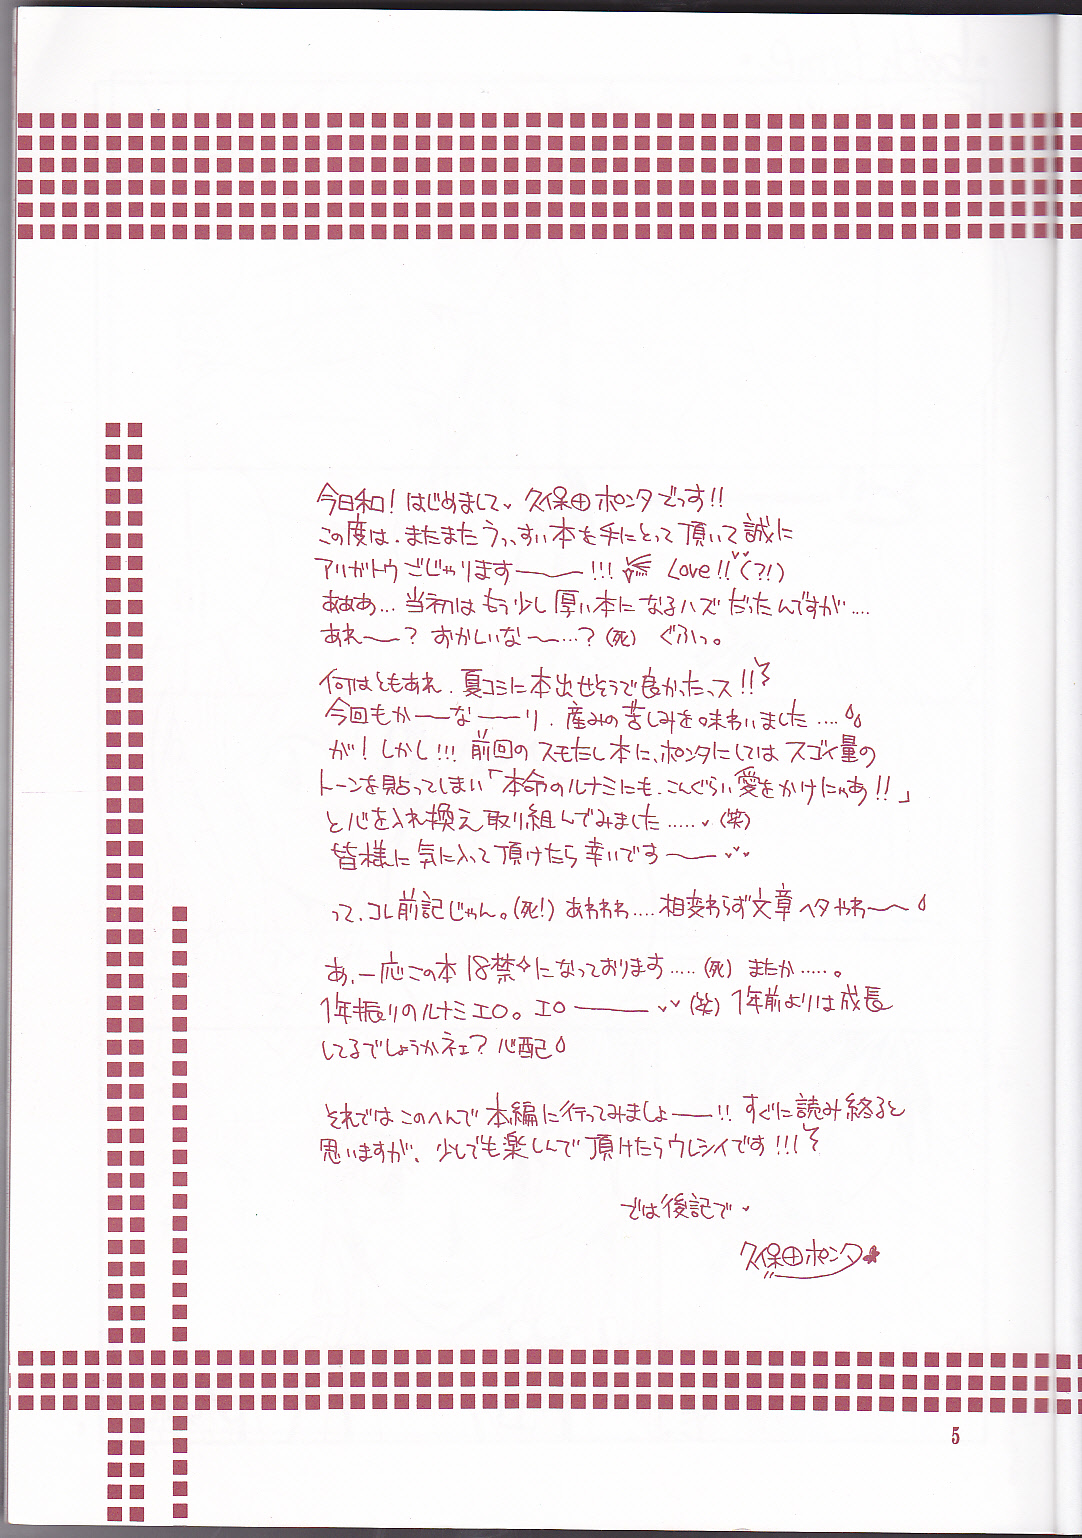 今日和!はじめまして♥ 久保田ポンタでっす!!
この度は、またまたうっすい本を手にとって頂いて誠に
アリガトウごじゃります———!!! Love!!♥(?!)
あああ…当初はもう少し厚い本になるハズだったんですが….
あれ〜?おかしいな〜…?(死) ぐふっ。
何はともあれ、夏コミに本出せそうで良かったっス!!
今回もか——な——り、産みの苦しみを味わいました….
が!しかし!!! 前回のスモたし本に、ポンタにしてはスゴイ量の
トーンを貼ってしまい「本命のルナミにも、こんぐらい愛をかけにゃあ!!」
と心を入れ換え取り組んでみました…..♥(笑)
皆様に気に入って頂けたら幸いです——♥♥
って、コレ前記じゃん。(死!) あわわわ….相変わらず文章ヘタやわ〜
あ、一応この本18禁になっております…..(死) またか…..。
1年振りのルナミエロ。エロ———♥♥(笑) 1年前よりは成長
してるでしょうかネェ? 心配
それではこのへんで本編に行ってみましょ——!! すぐに読み終ると
思いますが、少しでも楽しんで頂けたらウレシイです!!!
では後記で♥
久保田ポンタ
5